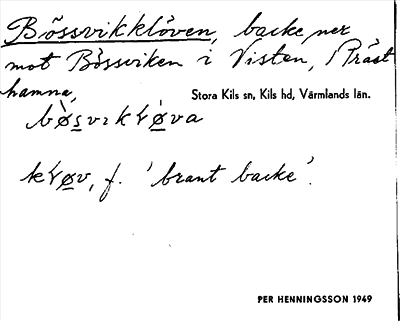 Bössvikklöven, backe ner
mot Bössviken i Visten, Präst
hamna,
Stora Kils sn, Kils hd, Värmlands län.
bø̀svɪkɽø̀va
kɽøv, f. 'brant backe'.
PER HENNINGSSON 1949